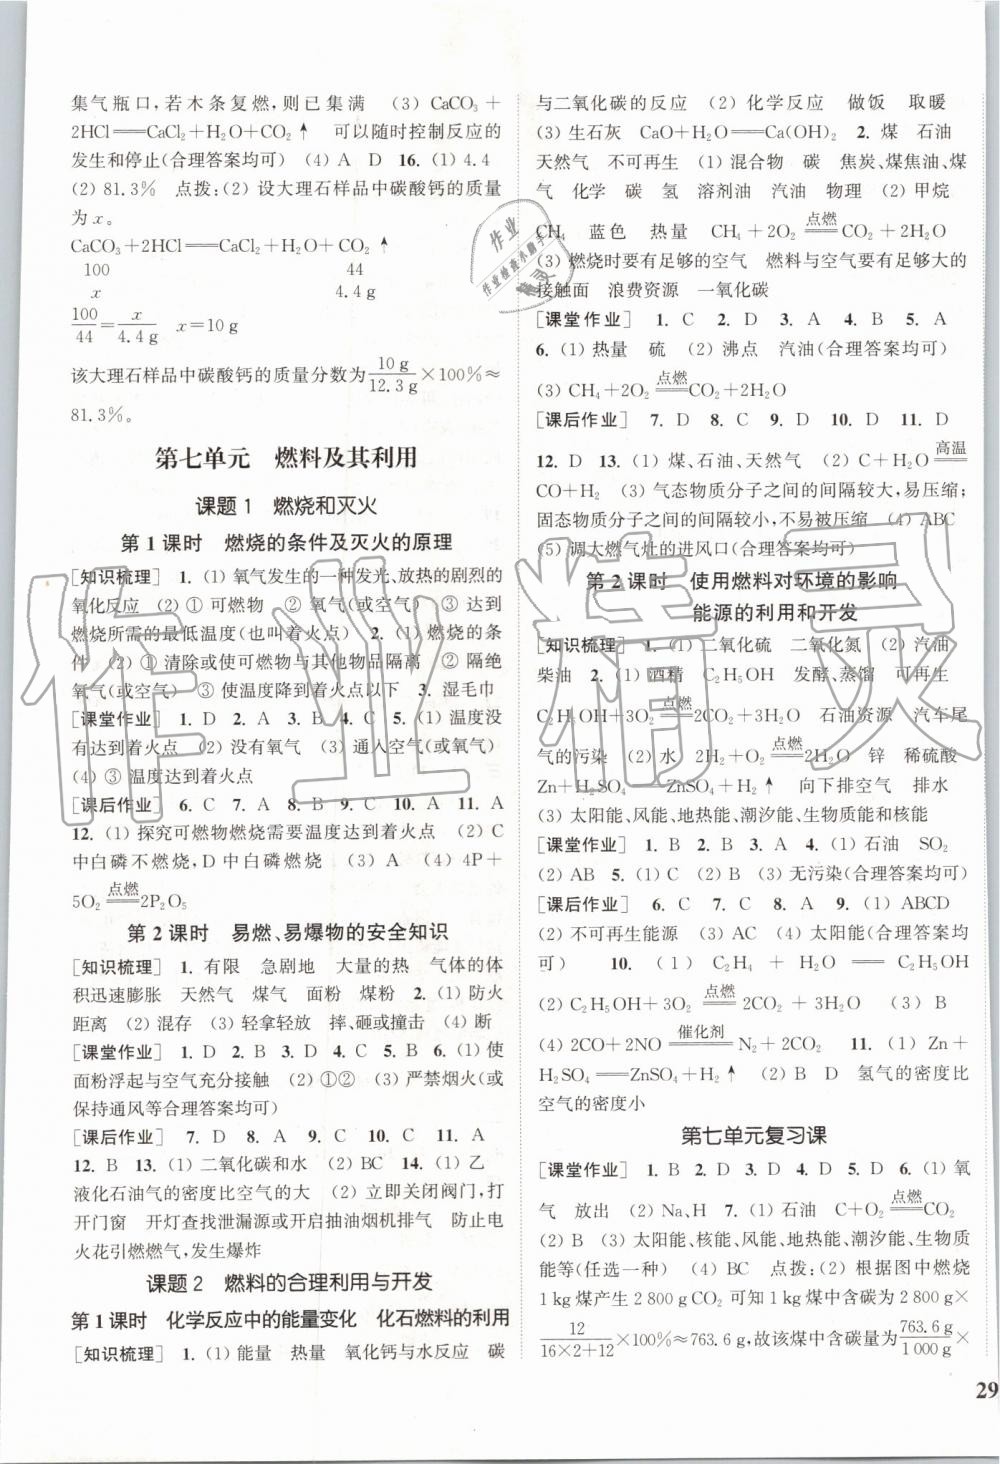 集气瓶口,若木条复燃,则已集满 (3) CaCO₃+
2HCl══CaCl₂+H₂O+CO₂↑ 可以随时控制反应的
发生和停止(合理答案均可) (4) A D 16. (1) 4.4
(2) 81.3% 点拨:(2) 设大理石样品中碳酸钙的质量
为 x。
CaCO₃+2HCl══CaCl₂+H₂O+CO₂↑
100 44
x 4.4 g
100/44=x/4.4 g x=10 g
该大理石样品中碳酸钙的质量分数为10 g/12.3 g×100%≈
81.3%。
第七单元 燃料及其利用
课题1 燃烧和灭火
第1课时 燃烧的条件及灭火的原理
[知识梳理] 1. (1) 氧气发生的一种发光、放热的剧烈的
氧化反应 (2) ① 可燃物 ② 氧气(或空气) ③ 达到
燃烧所需的最低温度(也叫着火点) 2. (1) 燃烧的条
件 (2) ① 清除或使可燃物与其他物品隔离 ② 隔绝
氧气(或空气) ③ 使温度降到着火点以下 3. 湿毛巾
[课堂作业] 1. D 2. A 3. A 4. C 5. (1) 温度没
有达到着火点 (2) 没有氧气 (3) 通入空气(或氧气)
(4) ③ 温度达到着火点
[课后作业] 6. C 7. A 8. D 9. C 10. A 11. A
12. (1) 探究可燃物燃烧需要温度达到着火点 (2) C
中白磷不燃烧,D中白磷燃烧 (3) A (4) 4P+
5O₂ 点燃══2P₂O₅
第2课时 易燃、易爆物的安全知识
[知识梳理] 1. 有限 急剧地 大量的热 气体的体
积迅速膨胀 天然气 煤气 面粉 煤粉 2. (1) 防火
距离 (2) 混存 (3) 轻拿轻放 摔、砸或撞击 (4) 断
[课堂作业] 1. D 2. B 3. D 4. D 5. B 6. (1) 使
面粉浮起与空气充分接触 (2) ①② (3) 严禁烟火(或
保持通风等合理答案均可)
[课后作业] 7. D 8. A 9. C 10. C 11. A
12. B 13. (1) 二氧化碳和水 (2) BC 14. (1) 乙
液化石油气的密度比空气的大 (2) 立即关闭阀门,打
开门窗 开灯查找泄漏源或开启抽油烟机排气 防止电
火花引燃燃气,发生爆炸
课题2 燃料的合理利用与开发
第1课时 化学反应中的能量变化 化石燃料的利用
[知识梳理] 1. (1) 能量 热量 氧化钙与水反应 碳
与二氧化碳的反应 (2) 化学反应 做饭 取暖
(3) 生石灰 CaO+H₂O══Ca(OH)₂ 2. 煤 石油
天然气 不可再生 (1) 混合物 碳 焦炭、煤焦油、煤
气 化学 碳 氢 溶剂油 汽油 物理 (2) 甲烷
CH₄ 蓝色 热量 CH₄+2O₂ 点燃══CO₂+2H₂O
(3) 燃烧时要有足够的空气 燃料与空气要有足够大的
接触面 浪费资源 一氧化碳
[课堂作业] 1. C 2. D 3. A 4. B 5. A
6. (1) 热量 硫 (2) 沸点 汽油(合理答案均可)
(3) CH₄+2O₂ 点燃══CO₂+2H₂O
[课后作业] 7. D 8. C 9. D 10. D 11. D
12. D 13. (1) 煤、石油、天然气 (2) C+H₂O 高温══
CO+H₂ (3) 气态物质分子之间的间隔较大,易压缩;
固态物质分子之间的间隔较小,不易被压缩 (4) ABC
(5) 调大燃气灶的进风口(合理答案均可)
第2课时 使用燃料对环境的影响
能源的利用和开发
[知识梳理] 1. (1) 二氧化硫 二氧化氮 (2) 汽油
柴油 2. (1) 酒精 C₂H₅OH 发酵、蒸馏 可再生
C₂H₅OH+3O₂ 点燃══2CO₂+3H₂O 石油资源 汽车尾
气的污染 (2) 水 2H₂+O₂ 点燃══2H₂O 锌 稀硫酸
Zn+H₂SO₄══ZnSO₄+H₂↑ 向下排空气 排水
(3) 太阳能、风能、地热能、潮汐能、生物质能和核能
[课堂作业] 1. B 2. B 3. A 4. (1) 石油 SO₂
(2) AB 5. (1) C (2) B (3) 无污染(合理答案均可)
[课后作业] 6. C 7. C 8. D 9. (1) ABCD
(2) 不可再生能源 (3) AC (4) 太阳能(合理答案均
可) 10. (1) C₂H₄+H₂O══C₂H₅OH
(2) C₂H₅OH+3O₂ 点燃══2CO₂+3H₂O (3) B
(4) 2CO+2NO 催化剂══N₂+2CO₂ 11. (1) Zn+
H₂SO₄══ZnSO₄+H₂↑ (2) B D 氢气的密度比
空气的密度小
第七单元复习课
[课堂作业] 1. B 2. D 3. D 4. D 5. D 6. (1) 氧
气 放出 (2) Na、H 7. (1) 石油 C+O₂ 点燃══CO₂
(2) B (3) 太阳能、核能、风能、地热能、潮汐能、生物质
能等(任选一种) (4) BC 点拨:(2) 根据图中燃烧
1 kg煤产生2 800 g CO₂ 可知1 kg煤中含碳为2 800 g×
12/16×2+12×100%≈763.6 g,故该煤中含碳量为763.6 g/1 000 g×
29
作业精灵
作业
作业检查小助手
精灵